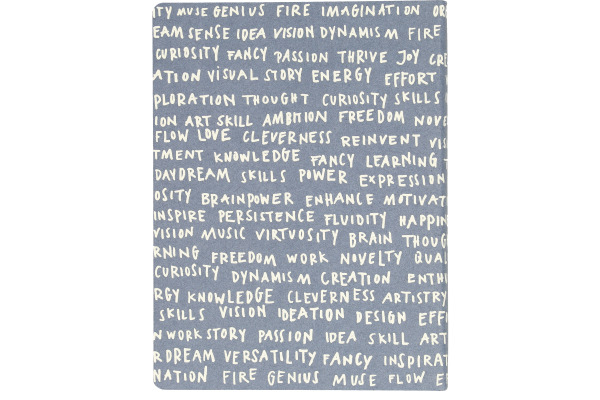 ITY MUSE GENIUS FIRE IMAGINATION OR
EAM SENSE IDEA VISION DYNAMISM FIRE
CURIOSITY FANCY PASSION THRIVE JOY CRE
ATION VISUAL STORY ENERGY EFFORT
PLORATION THOUGHT CURIOSITY SKILLS
ION ART SKILL AMBITION FREEDOM NOVE
FLOW LOVE CLEVERNESS REINVENT VIS
TMENT KNOWLEDGE FANCY LEARNING
DAYDREAM SKILLS POWER EXPRESSION
OSITY BRAINPOWER ENHANCE MOTIVAT
INSPIRE PERSISTENCE FLUIDITY HAPPIN
VISION MUSIC VIRTUOSITY BRAIN THOUG
RNING FREEDOM WORK NOVELTY QUAL
CURIOSITY DYNAMISM CREATION ENTHI
RGY KNOWLEDGE CLEVERNESS ARTISTRY
SKILLS VISION IDEATION DESIGN EFF
N WORK STORY PASSION IDEA SKILL ART
R DREAM VERSATILITY FANCY INSPIRAT
NATION FIRE GENIUS MUSE FLOW E